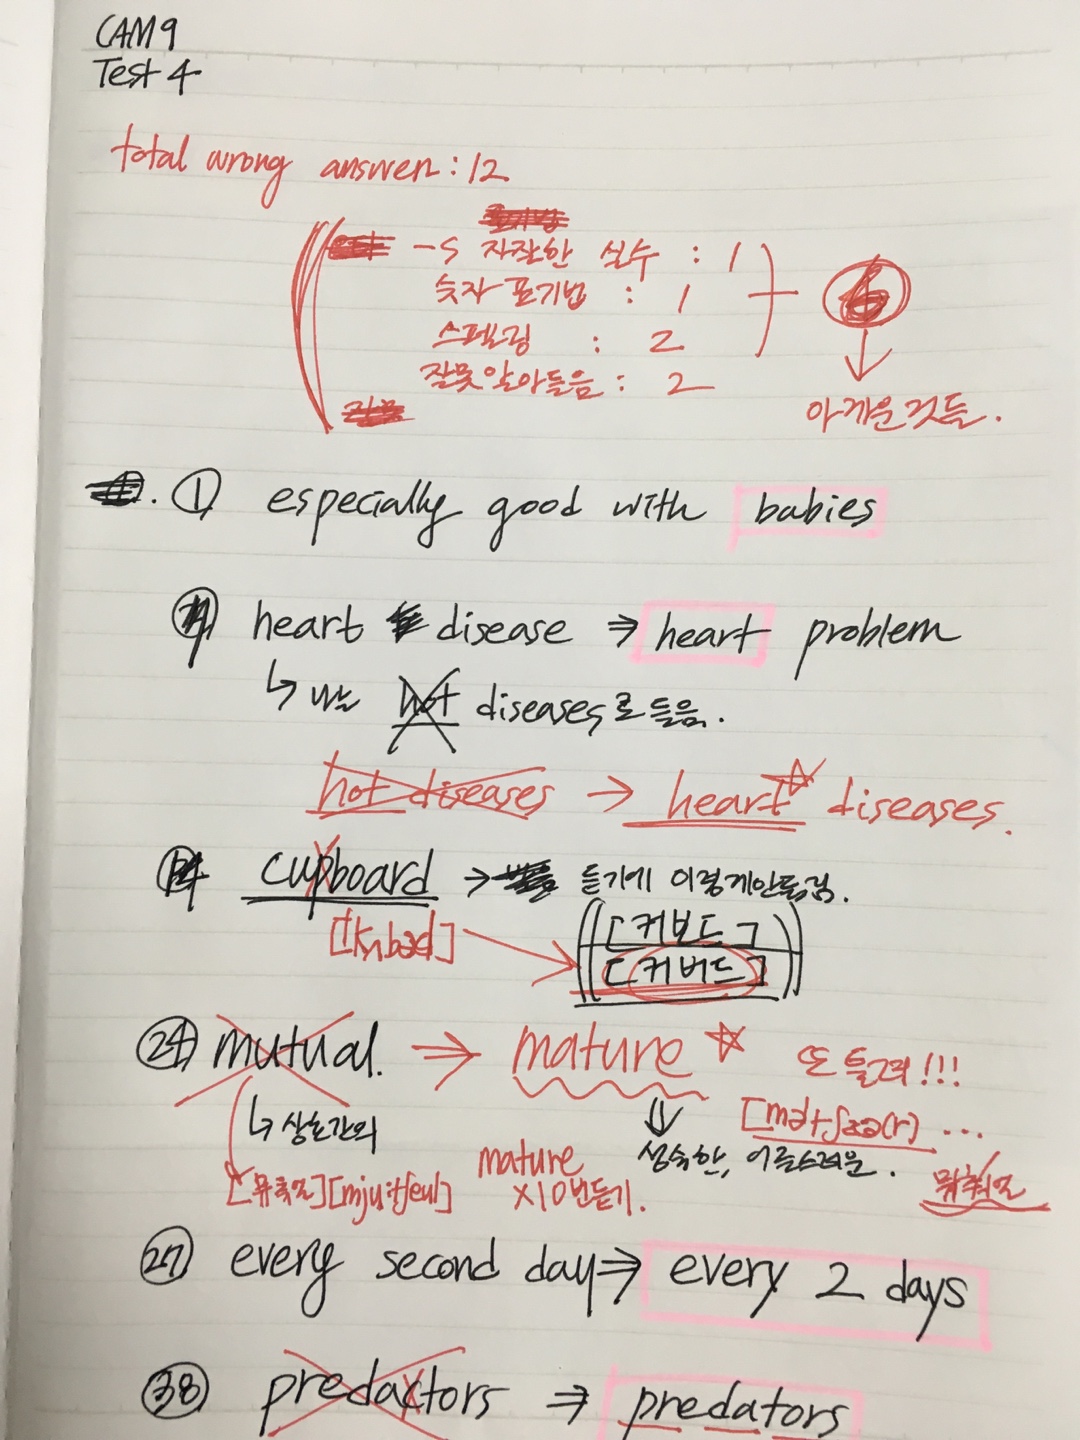 CAM9
Test 4
total wrong answer : 12
-s 자잘한 실수 : 1
숫자 표기법 : 1
스펠링 : 2
잘못알아들음 : 2
6
아까운것들.
① especially good with babies
heart disease ⇒ heart problem
↳ 나는 hot diseases로 들음.
hot diseases → heart☆ diseases.
14 cupboard → 듣기에 이렇게안들림.
[커보드]
[커버드]
㉔ mutual. → mature ☆ 또 틀려!!!
↳ 상호간의
성숙한, 어른스러운.
[mju:tʃeul]
mature
x10번듣기.
㉗ every second day ⇒ every 2 days
㊳ predactors ⇒ predators